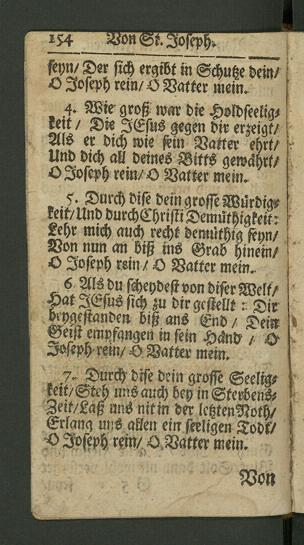 154 Von St. Joseph.
seyn/ Der sich ergibt in Schutze dein/
O Joseph rein/ O Vatter mein.
4. Wie groß war die Holdseelig-
keit/ Die JEsus gegen dir erzeigt/
Als er dich wie sein Vatter ehrt/
Und dich all deines Bitts gewährt/
O Joseph rein/ O Vatter mein.
5. Durch dise dein grosse Würdig-
keit/ Und durch Christi Demüthigkeit:
Lehr mich auch recht demüthig seyn/
Von nun an biß ins Grab hinein/
O Joseph rein/ O Vatter mein.
6. Als du scheydest von diser Welt/
Hat JEsus sich zu dir gestellt: Dir
beygestanden biß ans End/ Dein
Geist empfangen in sein Händ/ O
Joseph rein/ O Vatter mein.
7. Durch dise dein grosse Seelig-
keit/ Steh uns auch bey in Sterbens-
Zeit/ Laß uns nit in der letzten Noth/
Erlang uns allen ein seeligen Todt/
O Joseph rein/ O Vatter mein.
Von